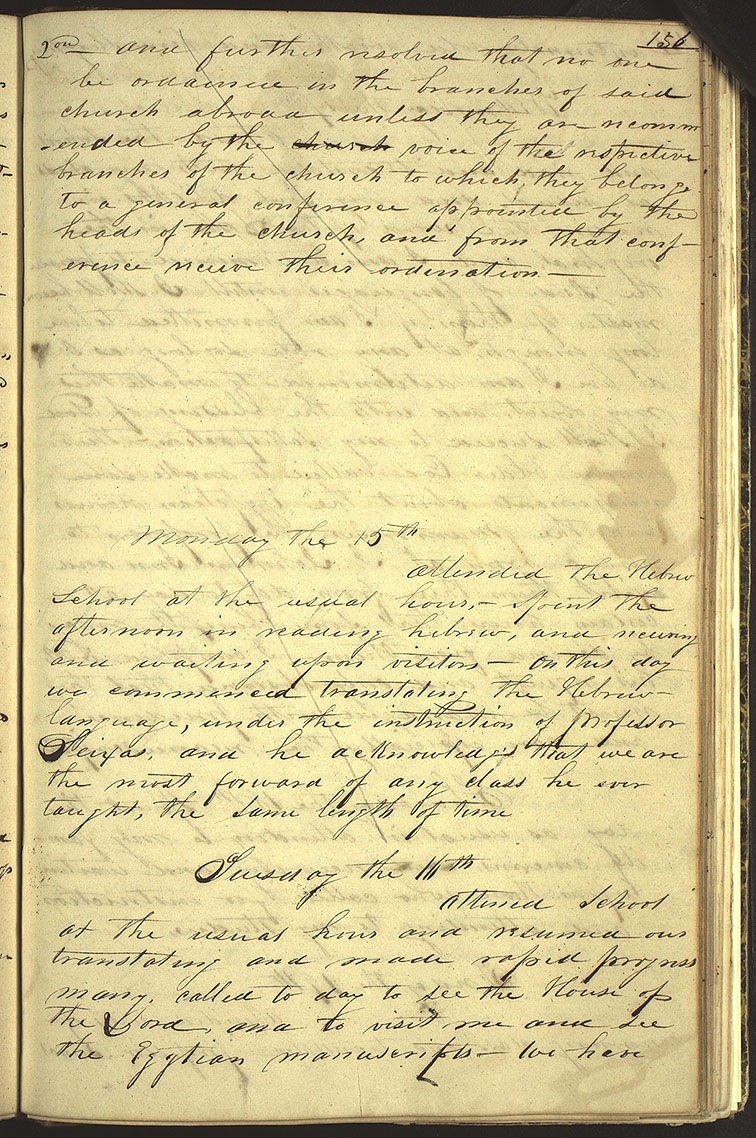 156
2ond— and further resolved that no one
be ordained in the branches of said
church abroad unless they are recomm
-ended by the church voice of the respective
branches of the church to which, they belonge
to a general conference appointed by the
heads of the church, and from that conf-
erence receive their ordination—
Monday the 15th
attended the Hebrew
School at the usual hour,— Spent the
afternoon in reading hebrew, and receiving
and waiting upon visitors— On this day
we commenced translating the Hebrew-
language, under the instruction of professor
Seixas, and he acknowledgs that we are
the most forward of any class he ever
taught, the same length of time
Tuesday the 16th
attened School
at the usual hour and resumed our
translating and made rapid progress
many, called to day to see the House of
the Lord, and to visit me and see
the Egytian manuscripts— we have